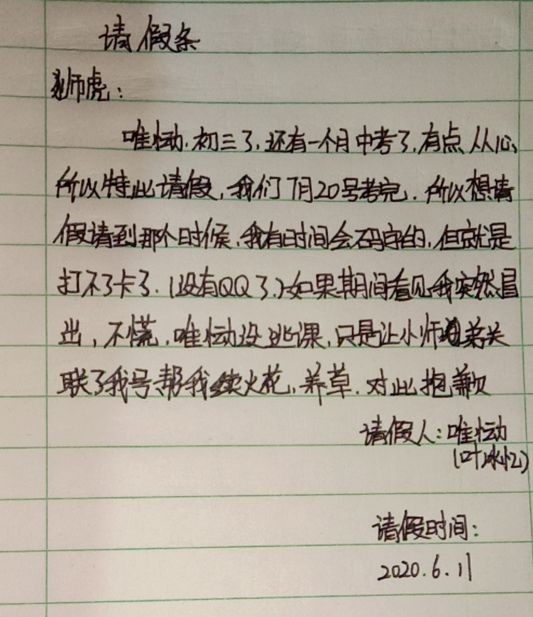 请假条
师虎：
唯恸，初三了，还有一个月中考了，有点从心，
所以特此请假，我们7月20号考完，所以想请
假请到那个时候，我有时间会码字的，但就是
打不了卡了.(没有QQ了)如果期间看见我突然冒
出，不慌，唯恸没逃课，只是让小师弟关
联了我号帮我续火花，养草，对此抱歉
请假人：唯恸
(叶冰忆)
请假时间：
2020.6.11